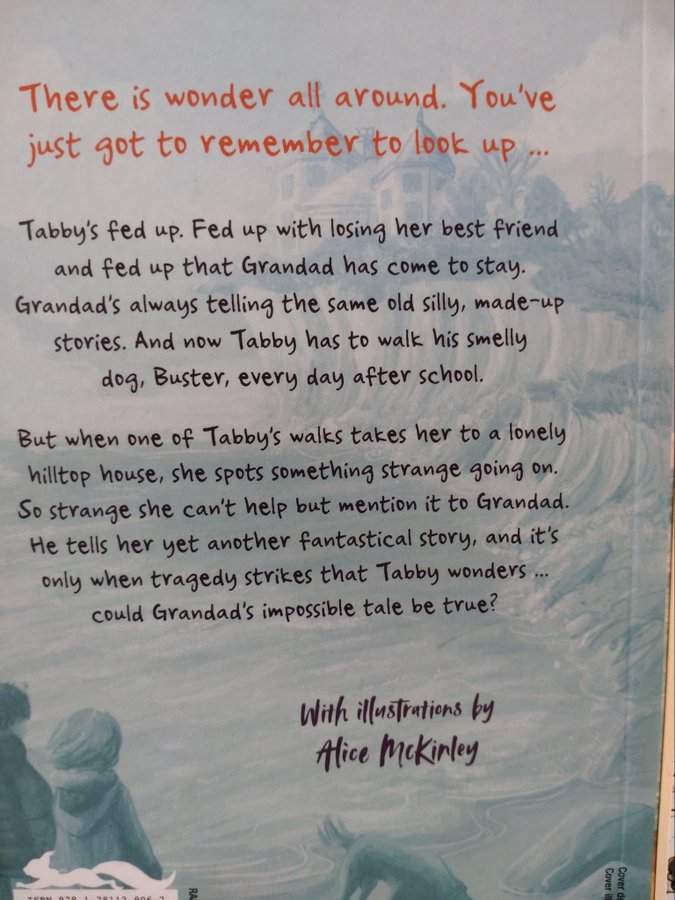 There is wonder all around. You've
just got to remember to look up ...
Tabby's fed up. Fed up with losing her best friend
and fed up that Grandad has come to stay.
Grandad's always telling the same old silly, made-up
stories. And now Tabby has to walk his smelly
dog, Buster, every day after school.
But when one of Tabby's walks takes her to a lonely
hilltop house, she spots something strange going on.
So strange she can't help but mention it to Grandad.
He tells her yet another fantastical story, and it's
only when tragedy strikes that Tabby wonders ...
could Grandad's impossible tale be true?
With illustrations by
Alice McKinley
ISBN 978-1-78112-906-7
RA
Cover de
Cover il